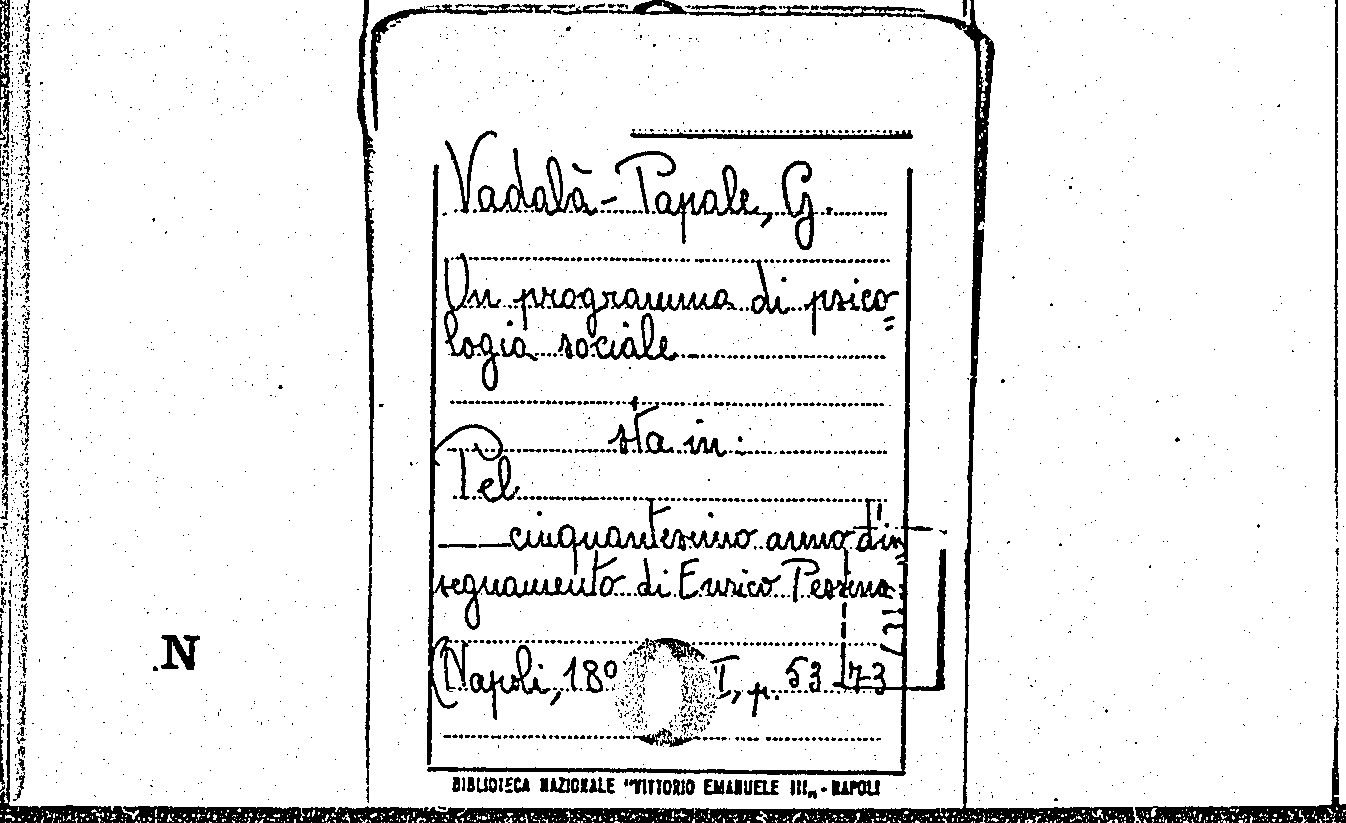 Vadalà-Papale, G.
Un programma di psico=
logia sociale
sta in:
Pel
cinquantesimo anno d'in=
segnamento di Enrico Pessina.
N
(Napoli, 189 I, p. 53-73
BIBLIOTECA NAZIONALE "VITTORIO EMANUELE III„ - NAPOLI